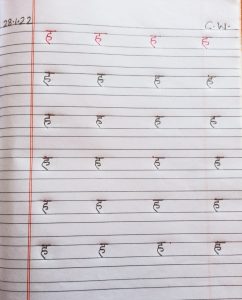 28.1.22 C.W.
ह ह ह ह
ह ह ह ह
ह ह ह ह
ह ह ह ह
ह ह ह ह
ह ह ह ह